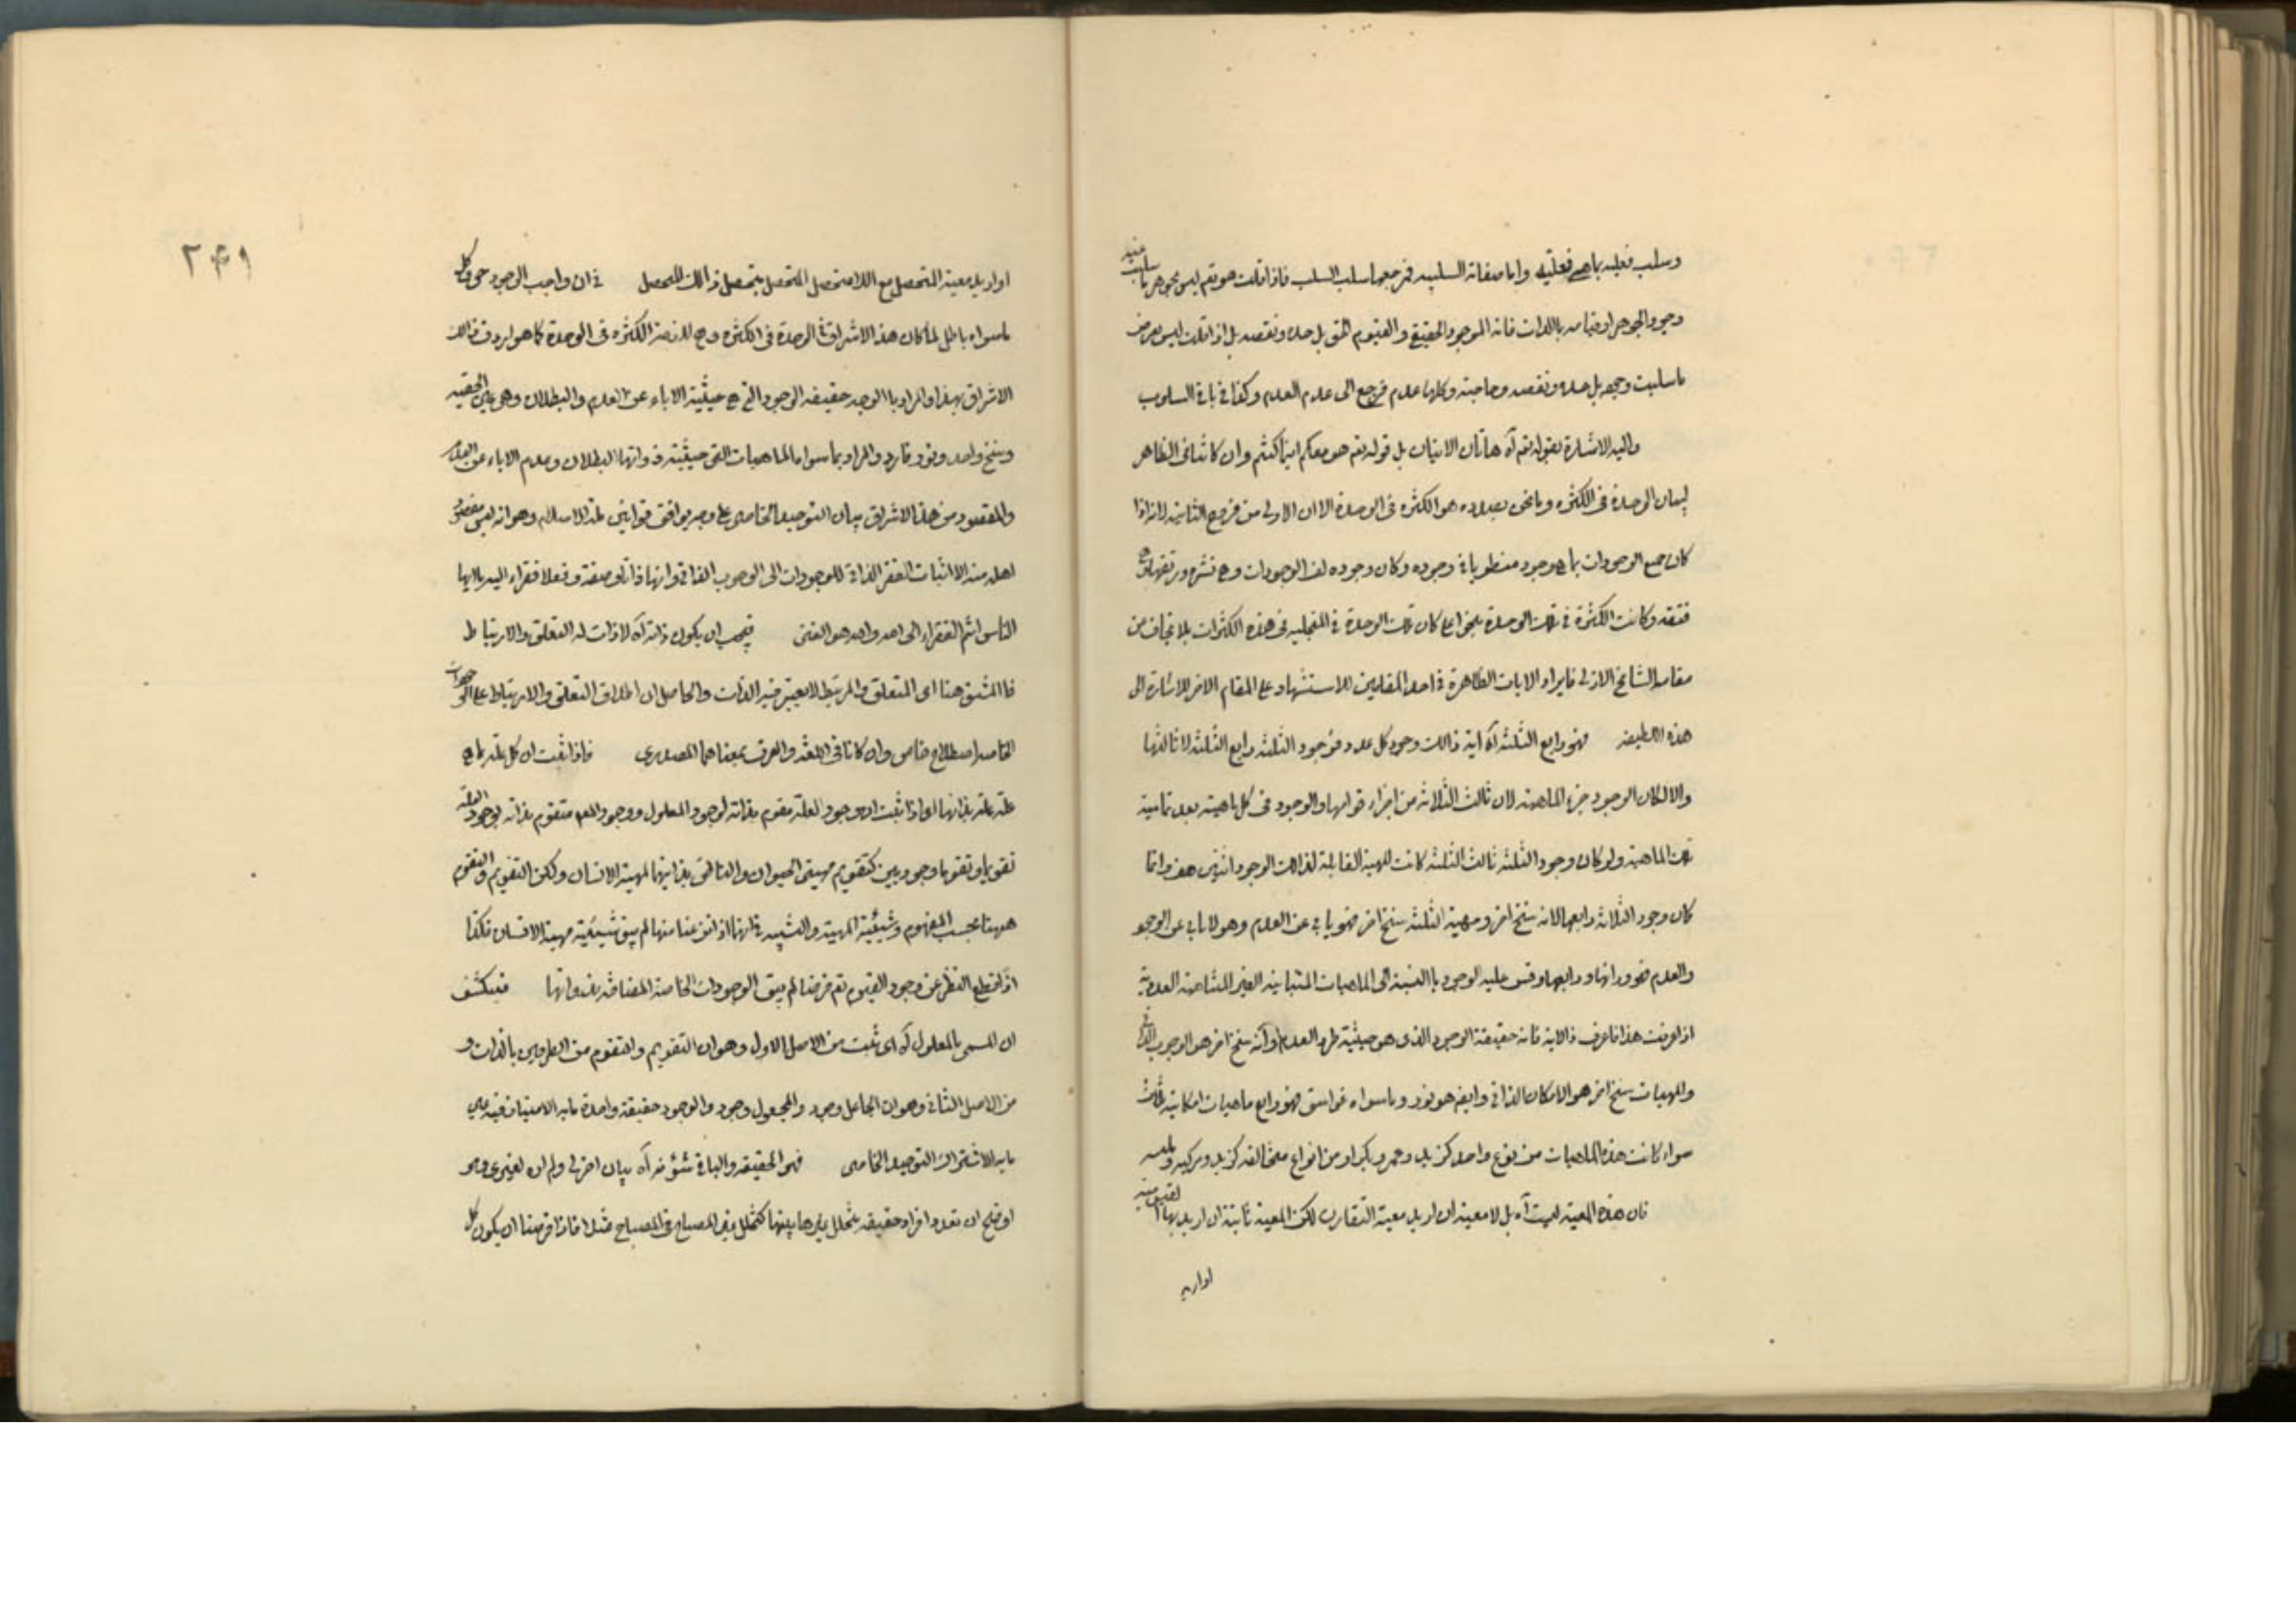 وسلب فعليه بما هى فعليه واما صفاته السلبيه فمرجعها سلب السلب فاذا قلت هو تعم ليس بجوهر ما سلبت منه
وجود الجوهر او قيامه بالذات فانه الموجود الحقيقى والقيوم المتق بل حده ونقصه بل اذا قلت ليس بعرض
ما سلبت وجوده بل حده ونقصه وحاجته وكلها عدم فيرجع الى عدم العدم وكذا فى باقى السلوب
واليه الاشارة بقوله تعم آه هاتان الايتان بل قوله تعم هو معكم اينما كنتم وان كانتا فى الظاهر
لبيان الوحدة فى الكثره وما نحن بصدده هو الكثره فى الوحدة الا ان الاولى من فروع الثانيه لانه اذا
كان جميع الوجودات بما هى وجود منطويا فى وجوده وكان وجوده لف الوجودات وهى نشره ورتقها وهى
فتقه وكانت الكثرة فى تلك الوحدة بنحو اعلى كان تلك الوحدة هى المتجليه فى هذه الكثرات بلا تجاف عن
مقامه الشامخ الازلى فايراد الايات الظاهرة فى احد المقامين للاستشهاد على المقام الاخر للاشارة الى
هذه اللطيفه فهو رابع الثلثه آه اية ذالك وجود كل عدد فوجود الثلثه رابع الثلثه لا ثالثها
والا لكان الوجود جزء الماهيه لان ثالث الثلاثه من اجزاء قوامها والوجود فى كل ماهيته بعد تماميه
تلك الماهيه ولو كان وجود الثلثه ثالث الثلثه كانت المهية القابلة لذالك الوجود اثنين هف وانما
كان وجود الثلاثه رابعها لانه سنخ اخر ومهية الثلثه سنخ اخر فهو يابى عن العدم وهو لا يابى عن الوجود
والعدم فهو ورائها ورابعها وقس عليه الوجود بالنسبة الى الماهيات المتباينه الغير المتناهيه العدديه
اذا عرفت هذا فاعرف ذا الاية فانه حقيقة الوجود الذى هو حيثية طرد العدم وانه سنخ اخر هو الوجوب الذاتى
والمهيات سنخ اخر هو الامكان الذاتى وايضه هو نور وما سواه غواسق فهو رابع ماهيات امكانية ثلث
سواء كانت هذه الماهيات من نوع واحد كزيد وعمرو وبكر او من انواع مخالفه كزيد ومركبه وملبسه
فان هذه المعية ليست آه بل لا معية ان اريد معية التقارن لكن المعية ثابتة ان اريد بها القيوميه
او اريد
٢۴١
او اريد معية المتحصل مع اللا متحصل المتحصل بتحصل ذالك المتحصل فى ان واجب الوجود حق وكل
ما سواه باطل لما كان هذا الاشراق فى الوحدة فى الكثره وهى لازمة الكثره فى الوحدة كما هو اردف ذالك
الاشراق بهذا والمراد بالوجود حقيقه الوجود التى هى حيثية الاباء عن العدم والبطلان وهى عين الحقيه
وسنخ واحد ونور فارد والمراد بما سواه الماهيات التى حيثية ذواتها البطلان وعدم الاباء عن العدم
والمقصود من هذا الاشراق بيان التوحيد الخاصى على وجه يوافق قوانين ملة الاسلام وهو انه ليس مقصود
اهله منه الا اثبات الفقر الذاتى للوجودات الى الوجوب الذاتى وانها ذاتا وصفة وفعلا فقراء اليه يا ايها
الناس انتم الفقراء الى الله والله هو الغنى فيجب ان يكون ذاته آه لا ذات له التعلق والارتباط
فالمشتق هنا اى المتعلق والمرتبط لا يعتبر فيه الذات والحاصل ان اطلاق التعلق والارتباط على الوجودات
الخاصه اصطلاح خاص وان كانا فى اللغة والعرف بمعناهما المصدرى فاذا ثبت ان كل علة بما هى
علة علة بذاتها اه اذا ثبت ان وجود العلة مقوم بذاته لوجود المعلول ووجود المعلول متقوم بذاته بوجود العلة
تقويما وتقوما وجوديين كتقويم مهيتى الحيوان والناطق بذاتيهما لمهية الانسان ولكن التقويم والتقوم
ههنا بحسب المفهوم وشيئية المهية والشبيه فى انها اذا نزعنا منها لم يبق شيئية مهية الانسان فكذا
اذا قطع النظر عن وجود القيوم تعم فرضا لم يبق الوجودات الخاصة المضافة بذواتها فينكشف
ان المسمى بالمعلول آه اى ثبت من الاصل الاول وهو ان التقويم والتقوم من الطرفين بالذات و
من الاصل الثانى وهو ان الجاعل وجود والمجعول وجود والوجود حقيقة واحدة ما به الامتياز فيه عين
ما به الاشتراك التوحيد الخاصى فهو الحقيقه والباقى شئونه آه بيان اخر لى ولم ار لغيرى وهو
اوضح ان تعدد افراد حقيقه بتخلل غيرها بينها كتخلل غير المصباح فى المصباح مثلا فاذا فرضنا ان يكون كل